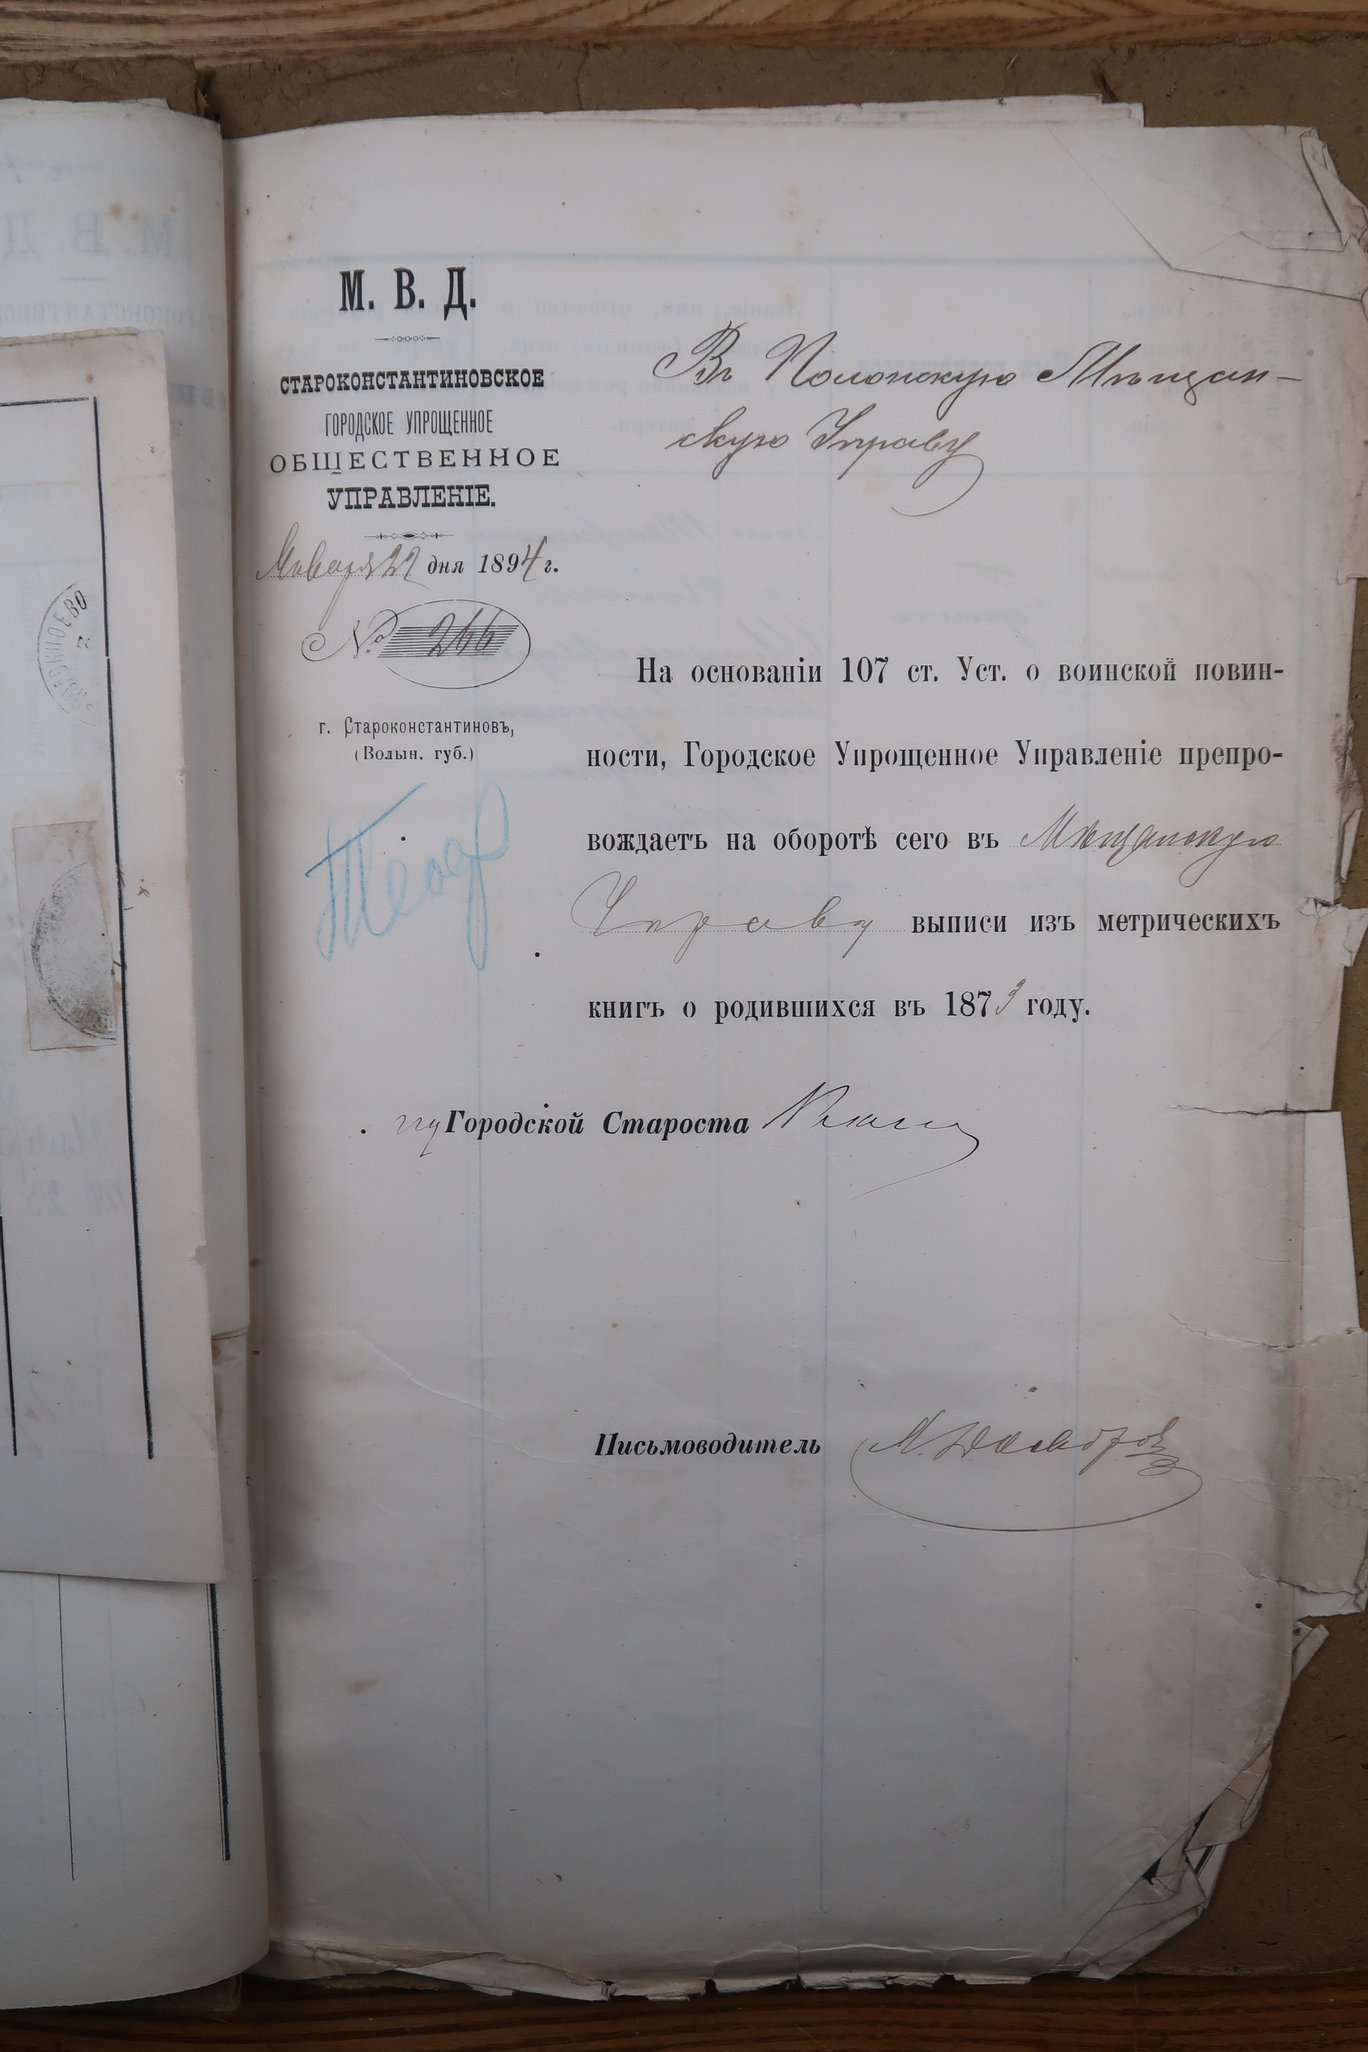 М. В. Д.
СТАРОКОНСТАНТИНОВСКОЕ
ГОРОДСКОЕ УПРОЩЕННОЕ
ОБЩЕСТВЕННОЕ
УПРАВЛЕНІЕ.
Января 22 дня 1894 г.
№ 266
г. Староконстантиновъ,
(Волын. губ.)
Въ Полонскую Мѣщан-
скую Управу
На основаніи 107 ст. Уст. о воинской повин-
ности, Городское Упрощенное Управленіе препро-
вождаетъ на оборотѣ сего въ Мѣщанскую
Управу выписи изъ метрическихъ
книгъ о родившихся въ 1873 году.
Городской Староста
Письмоводитель